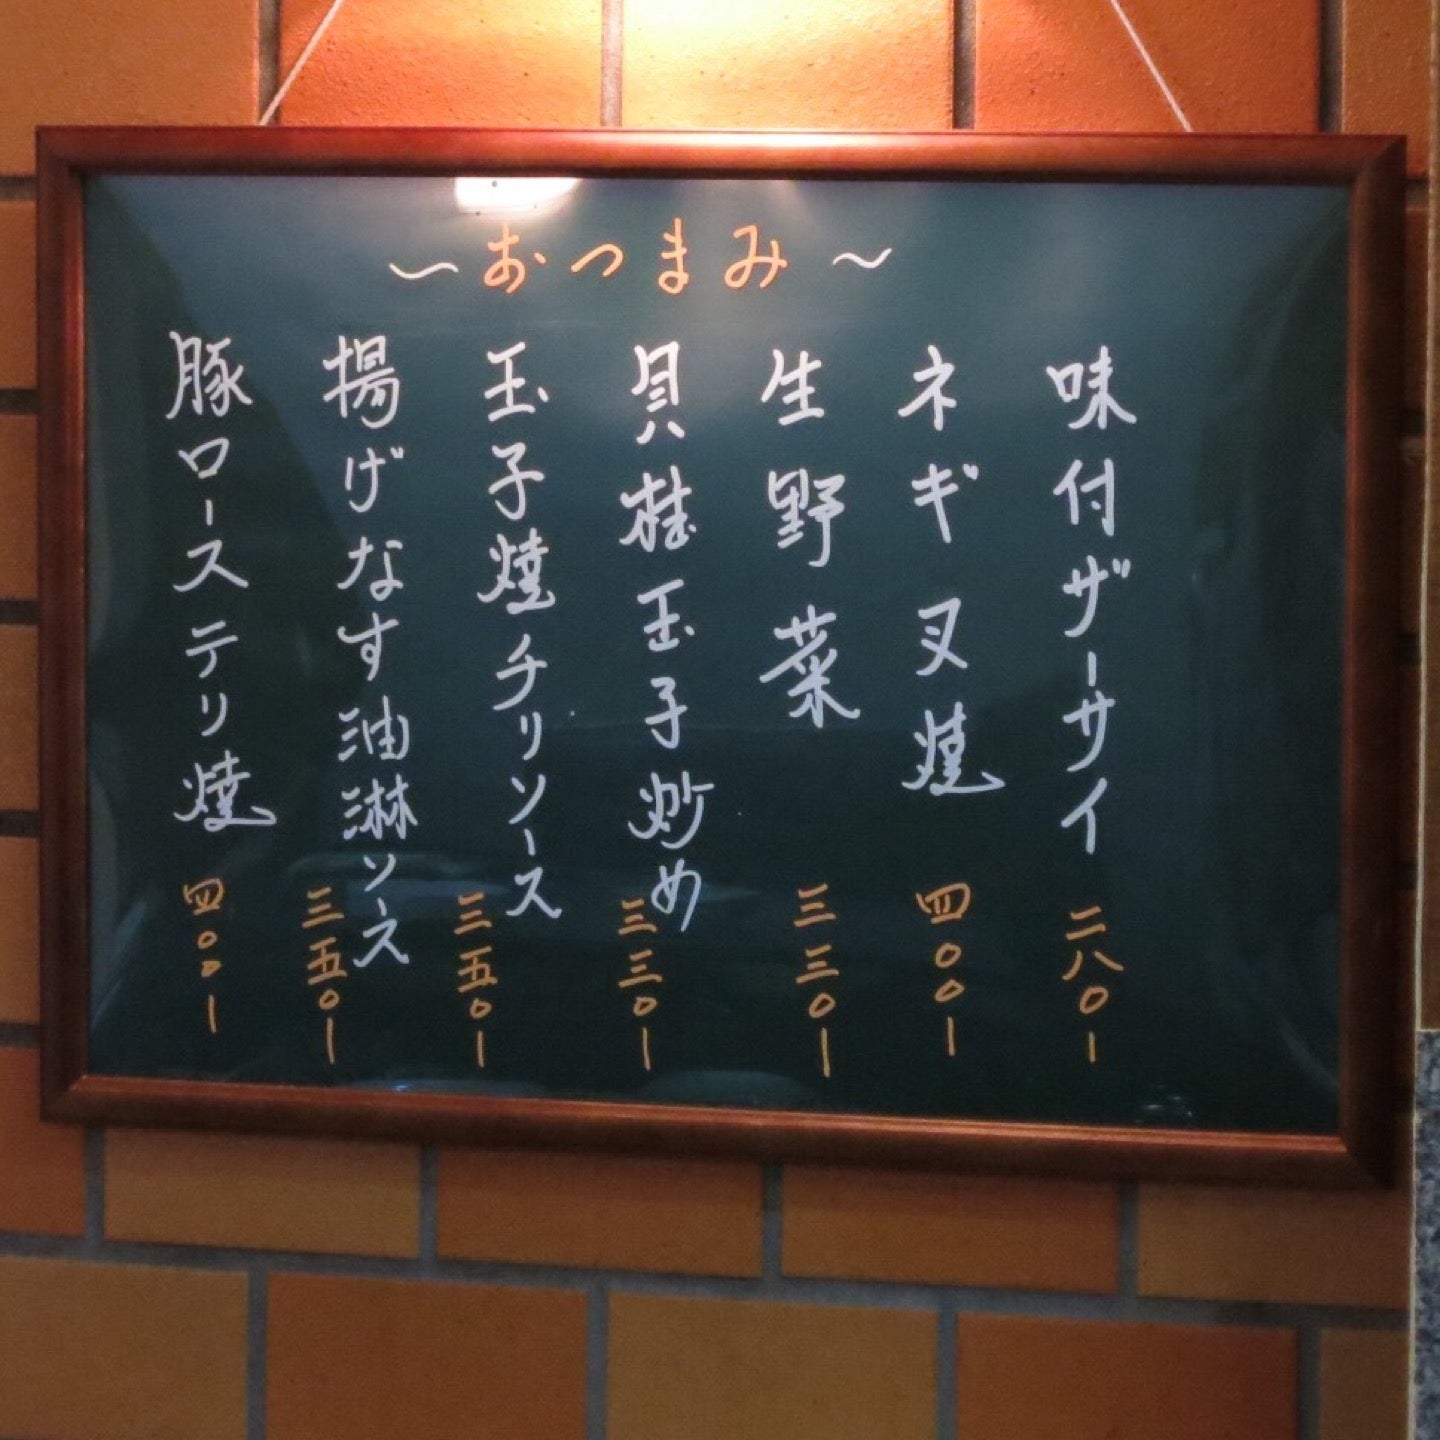 〜おつまみ〜
味付ザーサイ 二八〇ー
ネギ叉焼 四〇〇ー
生野菜 三三〇ー
貝柱玉子炒め 三三〇ー
玉子焼チリソース 三五〇ー
揚げなす油淋ソース 三五〇ー
豚ロース テリ焼 四〇〇ー